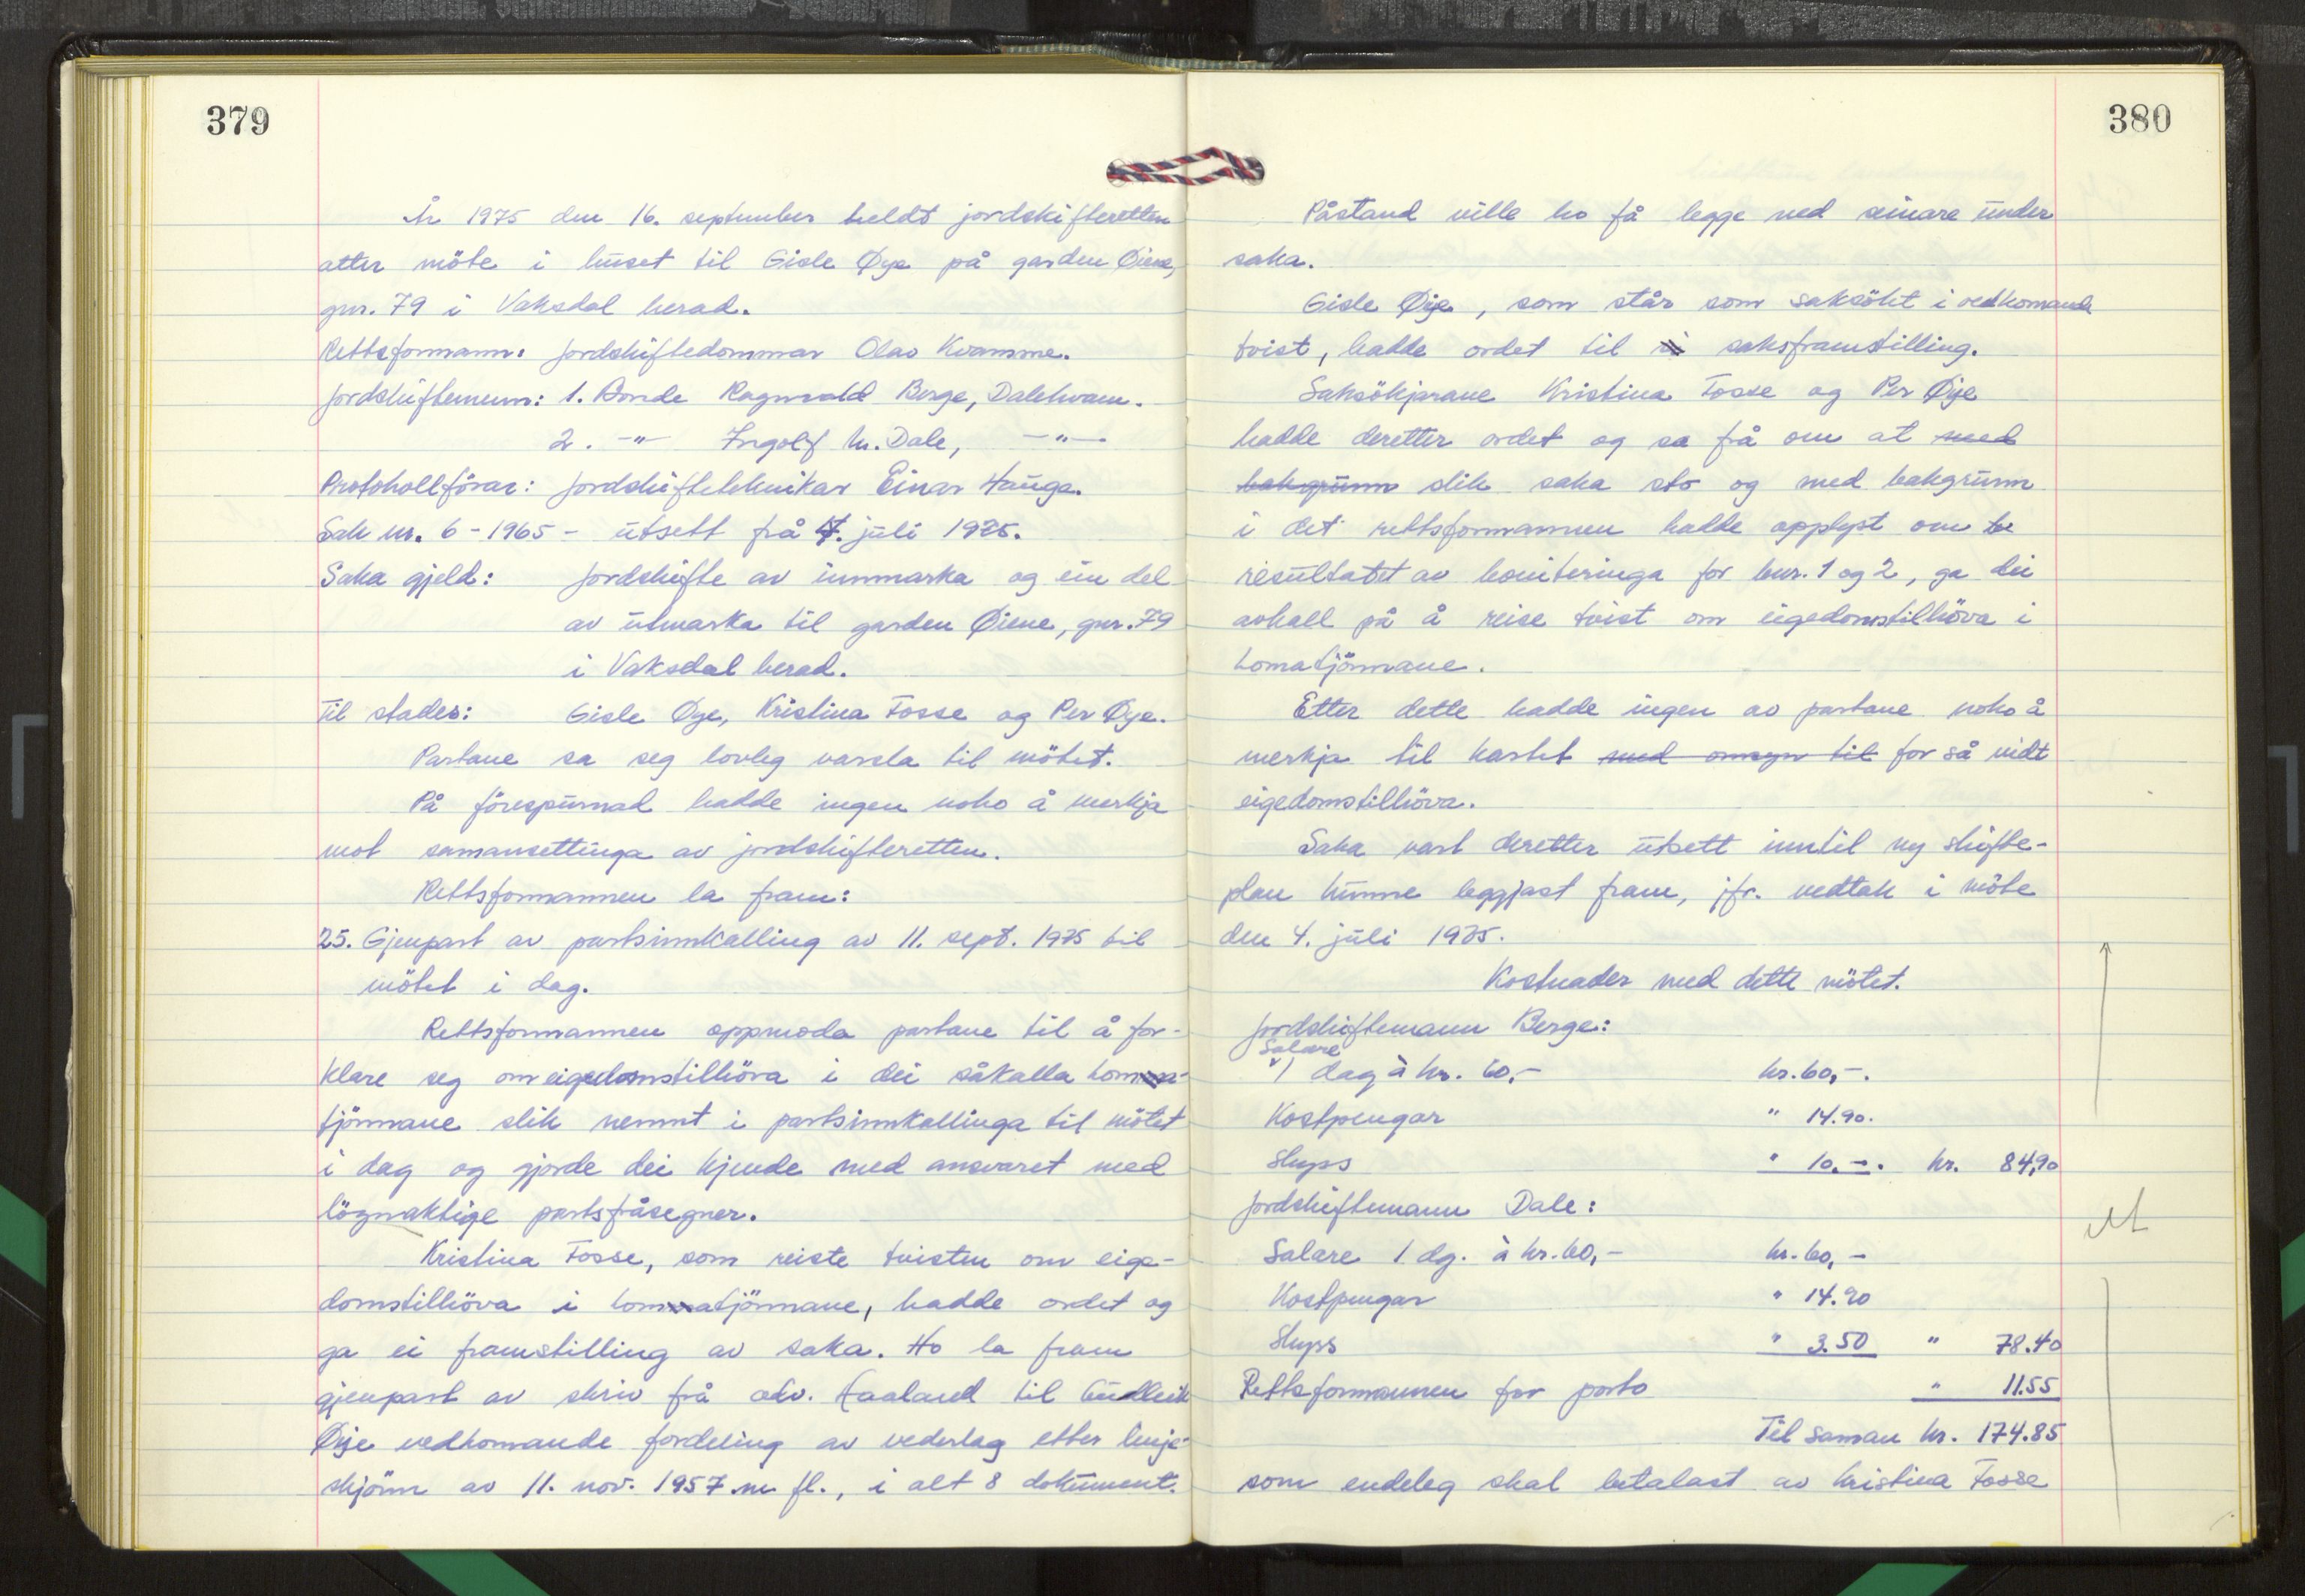 379
År 1975 den 16. september heldt jordskifteretten
atter möte i huset til Gisle Øye på garden Øiene,
gnr. 79 i Vaksdal herad.
Rettsformann: Jordskiftedommar Olav Kvamme.
Jordskiftemenn: 1. Bonde Ragnvald Berge, Dalekvam.
2. -"- Ingolf M. Dale, -"-
Protokollförar: Jordskifteteknikar Einar Hauga.
Sak nr. 6-1965 - utsett frå 4. juli 1975.
Saka gjeld: Jordskifte av innmarka og ein del
av utmarka til garden Øiene, gnr. 79
i Vaksdal herad.
Til stades: Gisle Øye, Kristina Fosse og Per Øye.
Partane sa seg lovleg varsla til mötet.
På förespurnad hadde ingen noko å merkja
mot samansettinga av jordskifteretten.
Rettsformannen la fram:
25. Gjenpart av partsinnkalling av 11. sept. 1975 til
mötet i dag.
Rettsformannen oppmoda partane til å for-
klare seg om eigedomstilhöva i dei såkalla Loma-
tjörnane slik nemnt i partsinnkallinga til mötet
i dag og gjorde dei kjende med ansvaret med
lögnaktige partsfråsegner.
Kristina Fosse, som reiste tvisten om eige-
domstilhöva i Lomatjörnane, hadde ordet og
ga ei framstilling av saka. Ho la fram
gjenpart av skriv frå adv. Haaland til Gudleik
Øye vedkomande fordeling av vederlag etter linje-
skjönn av 11. nov. 1957 m fl., i alt 8 dokument.
380
Påstand ville ho få legge ned seinare under
saka.
Gisle Øye, som står som saksökt i vedkomande
tvist, hadde ordet til saksframstilling.
Saksökjarane Kristina Fosse og Per Øye
hadde deretter ordet og sa frå om at med
bakgrunn slik saka sto og med bakgrunn
i det rettsformannen hadde opplyst om
resultatet av boniteringa for bnr. 1 og 2, ga dei
avkall på å reise tvist om eigedomstilhöva i
Lomatjörnane.
Etter dette hadde ingen av partane noko å
merkja til kartet med omsyn til for så vidt
eigedomstilhöva.
Saka vart deretter utsett inntil ny skifte-
plan kunne leggjast fram, jfr. vedtak i möte
den 4. juli 1975.
Kostnader med dette mötet.
Jordskiftemann Berge:
Salare
1 dag à kr. 60,- kr. 60,-.
Kostpengar " 14.90.
Skyss " 10.-. kr. 84,90
Jordskiftemann Dale:
Salare 1 dg. à kr. 60,- kr. 60,-
Kostpengar " 14.90
Skyss " 3.50 " 78.40
Rettsformannen for porto " 11.55
Til saman kr. 174.85
som endeleg skal betalast av Kristina Fosse